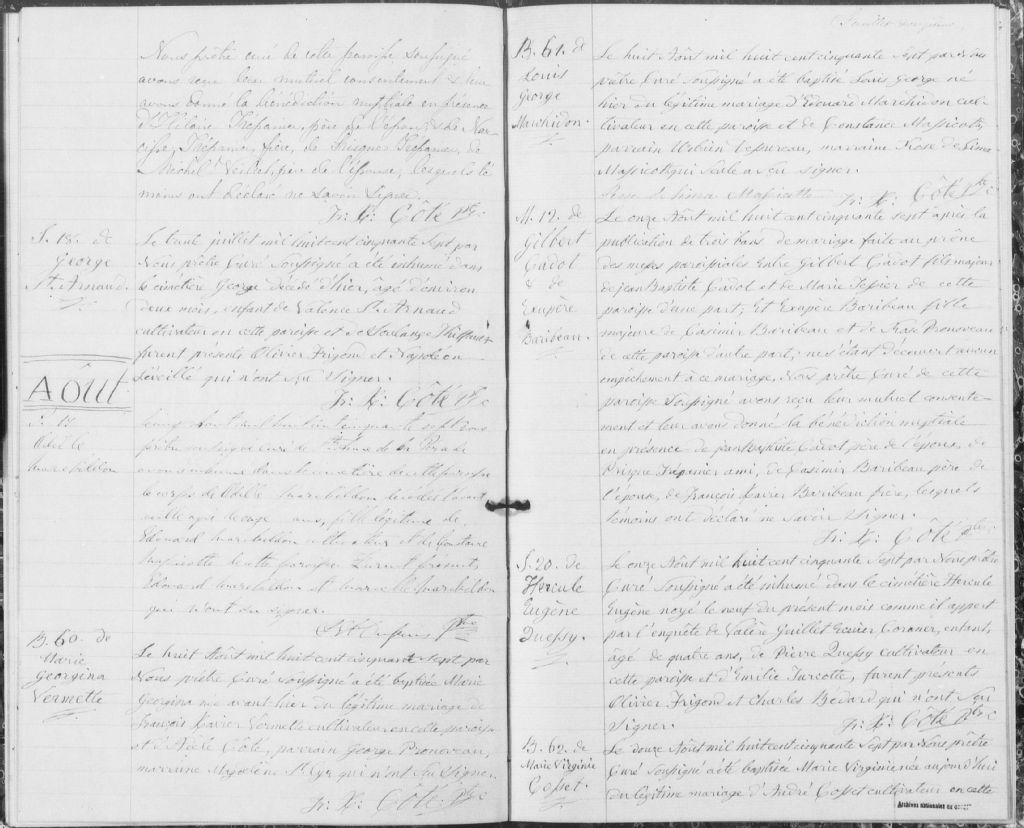 Nous prêtre curé de cette paroisse soussigné
avons reçu leur mutuel consentement & leur
avons donné la bénédiction nuptiale en présence
d'Hilaire Trépanier, père de l'époux, de Nar-
cisse Trépanier, frère, de Trépanier, de
Michel Veillet, père de l'épouse, lesquels té
moins ont déclaré ne savoir signer.
Fr: X: Côté Ptre C
S. 18. de
George
St. Arnaud.
Le trente juillet mil huit cent cinquante sept par
Nous prêtre Curé Soussigné a été inhumé dans
le cimetière George décédé d'hier, agé d'environ
deux mois, enfant de Valence St. Arnaud
cultivateur en cette paroisse et de Soulange
furent présents Olivier Frigond et Napoléon
Léveillé qui n'ont su signer.
Fr: X: Côté Ptre C
Aôut
S. 19
Odille
Marchildon
août mil huit cent cinquante sept nous
prêtre soussigné curé de Ste Anne de la Pérade
avons inhumé dans le cimetière de cette paroisse
le corps de Odille Marchildon décédée
agée de ans, fille légitime de
Edouard Marchildon cultivateur et de Constance
Massicotte de cette paroisse. Furent présents
Edouard Marchildon et Marchildon
qui n'ont su signer.
Ptre
B. 60. de
Marie
Georgina
Vermette
Le huit Aôut mil huit cent cinquante sept par
Nous prêtre Curé soussigné a été baptisée Marie
Georgina née avant hier du légitime mariage de
François Xavier Vermette cultivateur en cette paroisse
et d'Adèle Côté, parrain George Pronoveau,
marraine Magdeleine St Cyr qui n'ont su signer.
Fr: X: Côté Ptre C
B. 61. de
Louis
George
Marchildon.
Le huit Aôut mil huit cent cinquante sept par nous
prêtre Curé Soussigné a été baptisé Louis George né
hier du légitime mariage d'Edouard Marchildon cul-
tivateur en cette paroisse et de Constance Massicotte,
parrain Urbain Lesureau, marraine Rose de Lima
Massicotte qui seule a su signer.
Rose de Lima Massicotte Fr: X: Côté Ptre C
M. 12. de
Gilbert
Cadot
& de
Exupère
Baribeau.
Le onze Aôut mil huit cent cinquante sept après la
publication de trois bans de mariage faite au prône
des messes paroissiales Entre Gilbert Cadot fils majeur
de Jean Baptiste Cadot et de Marie Tessier de cette
paroisse d'une part; Et Exupère Baribeau fille
majeure de Casimir Baribeau et de Rose Pronoveau
de cette paroisse d'autre part; ne s'étant découvert aucun
empêchement à ce mariage, Nous prêtre Curé de cette
paroisse soussigné avons reçu leur mutuel consente-
ment et leur avons donné la bénédiction nuptiale
en présence de Jean Baptiste Cadot père de l'époux, de
Trépanier ami, de Casimir Baribeau père de
l'épouse, de François Xavier Baribeau frère, lesquels
témoins ont déclaré ne savoir signer.
Fr: X: Côté Ptre
S. 20. de
Hercule
Eugène
Quessy.
Le onze Aôut mil huit cent cinquante sept par Nous prêtre
Curé Soussigné a été inhumé dans le cimetière Hercule
Eugène noyé le neuf du présent mois comme il appert
par l'enquête de Valère Guillet Ecuier Coroner, enfant,
âgé de quatre ans, de Pierre Quessy cultivateur en
cette paroisse et d'Emilie Turcotte, furent présents
Olivier Frigond et Charles Bédard qui n'ont su
signer. Fr: X: Côté Ptre C
B. 62. de
Marie Virginie
Gosset.
Le douze Aôut mil huit cent cinquante sept par Nous prêtre
Curé Soussigné a été baptisée Marie Virginie née aujourd'hui
du légitime mariage d'André Gosset cultivateur en cette
Archives nationales du